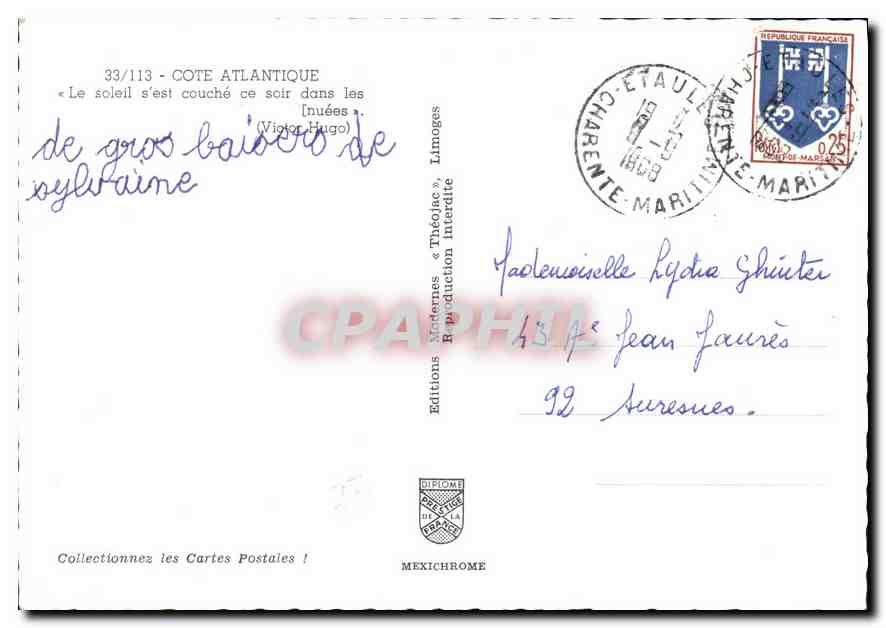 33/113 - COTE ATLANTIQUE
« Le soleil s'est couché ce soir dans les
[nuées ».
(Victor Hugo)
de gros baisers de
sylvaine
Editions Modernes « Théojac », Limoges
Reproduction interdite
REPUBLIQUE FRANÇAISE
0,25
MONT-DE-MARSAN
ETAULES
CHARENTE-MARITIME
1968
CHARENTE-MARITIME
Mademoiselle Lydia Ghinter
43 Ae Jean Jaurès
92 Suresnes.
CPAPHIL
DIPLOME
PRESTIGE
DE LA
FRANCE
MEXICHROME
Collectionnez les Cartes Postales !